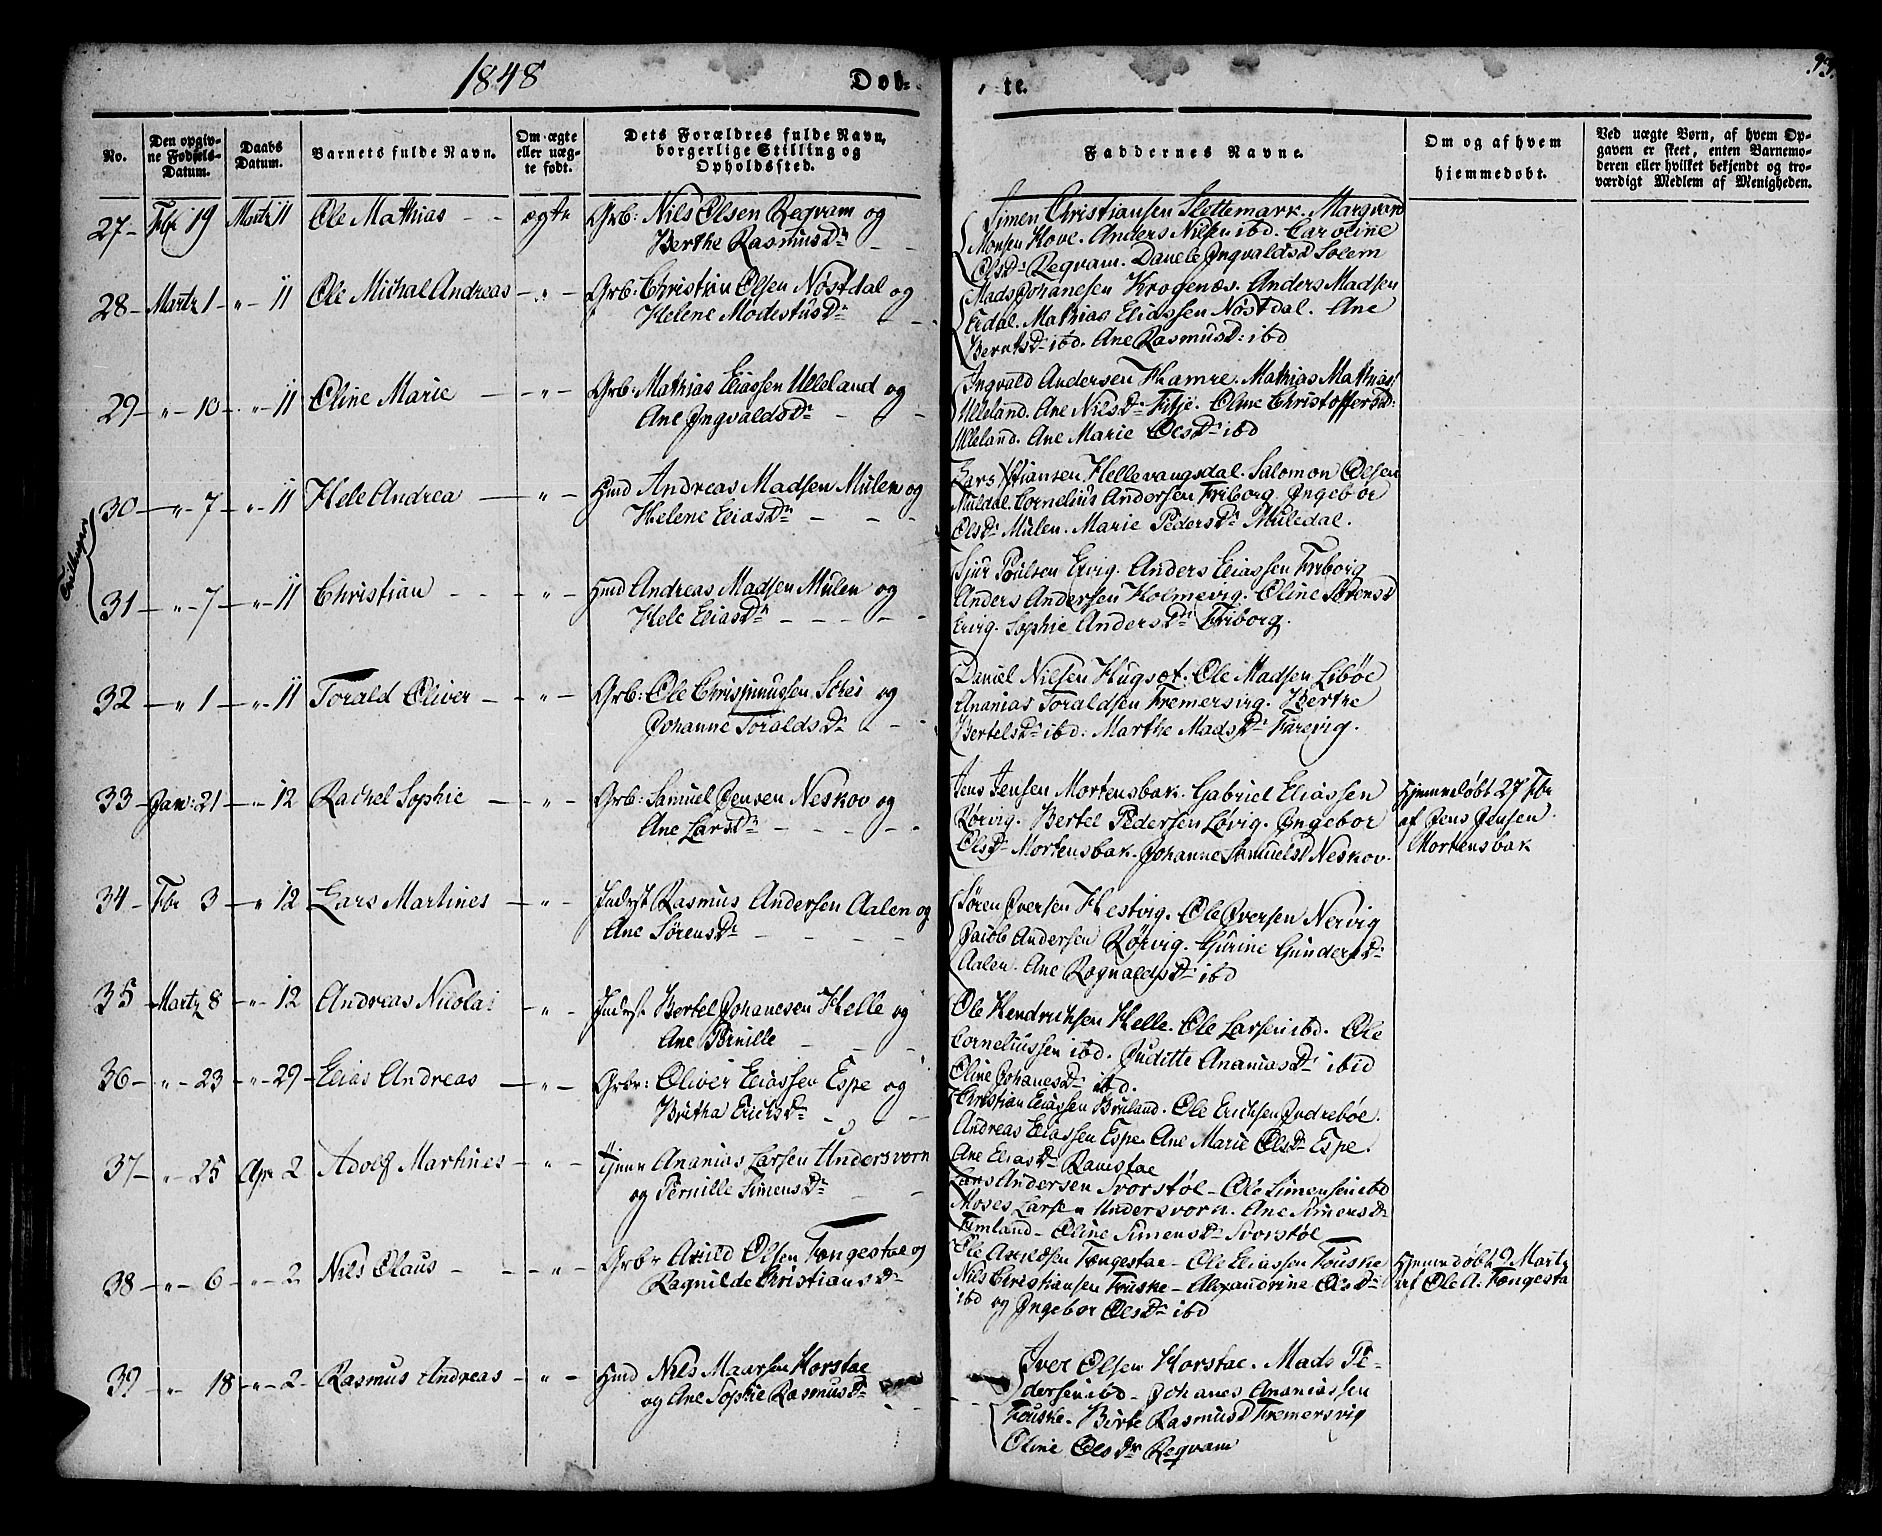 1848
Døb-
te.
93.
No.
Den opgiv-
ne Fødsels-
Datum.
Daabs
Datum.
Barnets fulde Navn.
Om ægte
eller uæg-
te født.
Dets Forældres fulde Navn,
borgerlige Stilling og
Opholdssted.
Faddernes Navne.
Om og af hvem
hjemmedøbt.
Ved uægte Børn, af hvem Op-
gaven er skeet, enten Barnemo-
deren eller hvilket bekjendt og tro-
værdigt Medlem af Menigheden.
27- Fbr 19 Martz 11 Ole Mathias - - ægte Grb: Nils Olsen Reqvam og
Berthe RasmusDr - -
Simen Christiansen Slettemark. Marqvard
Monsen Hove. Anders Nilsen ibd. Caroline
OlsDr Reqvam. Danele IngvaldsD Solem
28- Martz 1- "- 11 Ole Michal Andreas -"- Grb: Christian Olsen Nøstdal og
Helene ModestusDr - -
Mads Johanesen Krogenæs. Anders Madsen
Erdal. Mathias Eliassen Nøstdal. Ane
BerntsDr ibd. Ane RasmusD: ibd
29- "- 10- "- 11 Oline Marie - -"- Grb: Mathias Eliassen Ulleland og
Ane IngvaldsDr - -
Ingvald Andersen Hamre. Mathias Mathias
Ulleland. Ane NilsDr Fitje. Oline ChristoffersD:
Ulleland. Ane Marie OlsDr ibd
Tvillinger
30- "- 7- "- 11 Hele Andrea - "- Hmd Andreas Madsen Mulen og
Helene EliasDr - - -
Lars Xstiansen Hellevangsdal. Salomon Olsen
Muldal. Cornelius Andersen Friborg. Ingebøe
OlsDr Mulen. Marie PedersDr Muledal.
31- "- 7- "- 11 Christian - - -"- Hmd Andreas Madsen Mulen og
Hele EliasDr - - - - -
Sjur Poulsen Ervig. Anders Eliassen Friborg
Anders Andersen Holmevig. Oline SørensD
Ervig. Sophie AndersDr Friborg.
32- " 1- "- 11 Torald Oliver - -"- Grb: Ole Schei og
Johanne ToraldsDr - -
Daniel Nilsen Hugsæt. Ole Madsen Libøe
Ananias Toraldsen Fremersvig. Berthe
BertelsDr ibd: Marthe MadsDr Farevig.
33- Jan: 21- "- 12 Rachel Sophie - -"- Grb: Samuel Jensen Neskov og
Ane LarsDr - - - - -
Jens Jensen Mortensbak. Gabriel Eliassen
Rørvig. Bertel Pedersen Løvig. Ingebor
OlsDr Mortensbak. Johanne SamuelsD Neskov.
Hjemmedøbt 27 Fbr
af Jens Jensen
Mortensbak
34- Fbr 3 - " 12 Lars Martines -"- Inderst Rasmus Andersen Aalen og
Ane SørensDr - - - -
Søren Iversen Hestvig. Ole Iversen Nervig
Jacob Andersen Rørvig. Gurine GundersDr
Aalen. Ane RognaldsDr ibd
35 - Martz 8 - "- 12 Andreas Nicolai -"- Inderst Bertel Johanesen Helle og
Ane Pernille - - -
Ole Hendrichsen Helle. Ole Larsen ibd. Ole
Corneliussen ibd. Juditte AnaniasDr ibid
Oline JohanesDr ibd.
36- "- 23 - "- 29- Elias Andreas -"- Grbr: Oliver Eliassen Espe og
Britha ErichsDr - - -
Christian Eliassen Bruland. Ole Erichsen Indrebøe.
Andreas Eliassen Espe. Ane Marie OlsDr Espe.
Ane EliasDr Ramstae
37- "- 25 Apr 2 - Adolf Martines -"- Ananias Larsen Undersvorn
og Pernille SimensDr - -
Lars Andersen Svorstøl - Ole Simensen ibd
Moses Larsen Undersvorn. Ane SimensDr
Femland - Oline SimensDr Svorstøl
38 - "- 6 - "- 2- Nils Olaus - -"- Grbr Arild Olsen Fængestae og
Ragnilde ChristiansDr
Ole Arildsen Fængestae - Ole Eliassen Fouske
Nils Christiansen Fouske - Alexandrine OlsDr
ibd og Ingebor OlsDr ibd
Hjemmedøbt 9 Martz
af Ole A. Fængesta
39 - "- 18 - "- 2- Rasmus Andreas -"- Hmd Nils Maarsen Horstae
og Ane Sophie RasmusDr
Iver Olsen Horstae. Mads Pe-
dersen ibd - Johanes Ananiassen
Fouske. Birte RasmusD Fremersvig
Oline OlsDr Reqvam